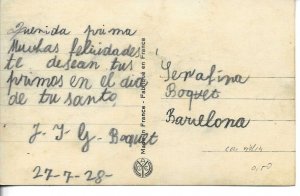 Querida prima
Muchas felicidades
te desean tus
primos en el dia
de tu santo
J-J y G- Boquet
27-7-28-
Made in France - Fabriqué en France
Serafina
Boquet
Barcelona